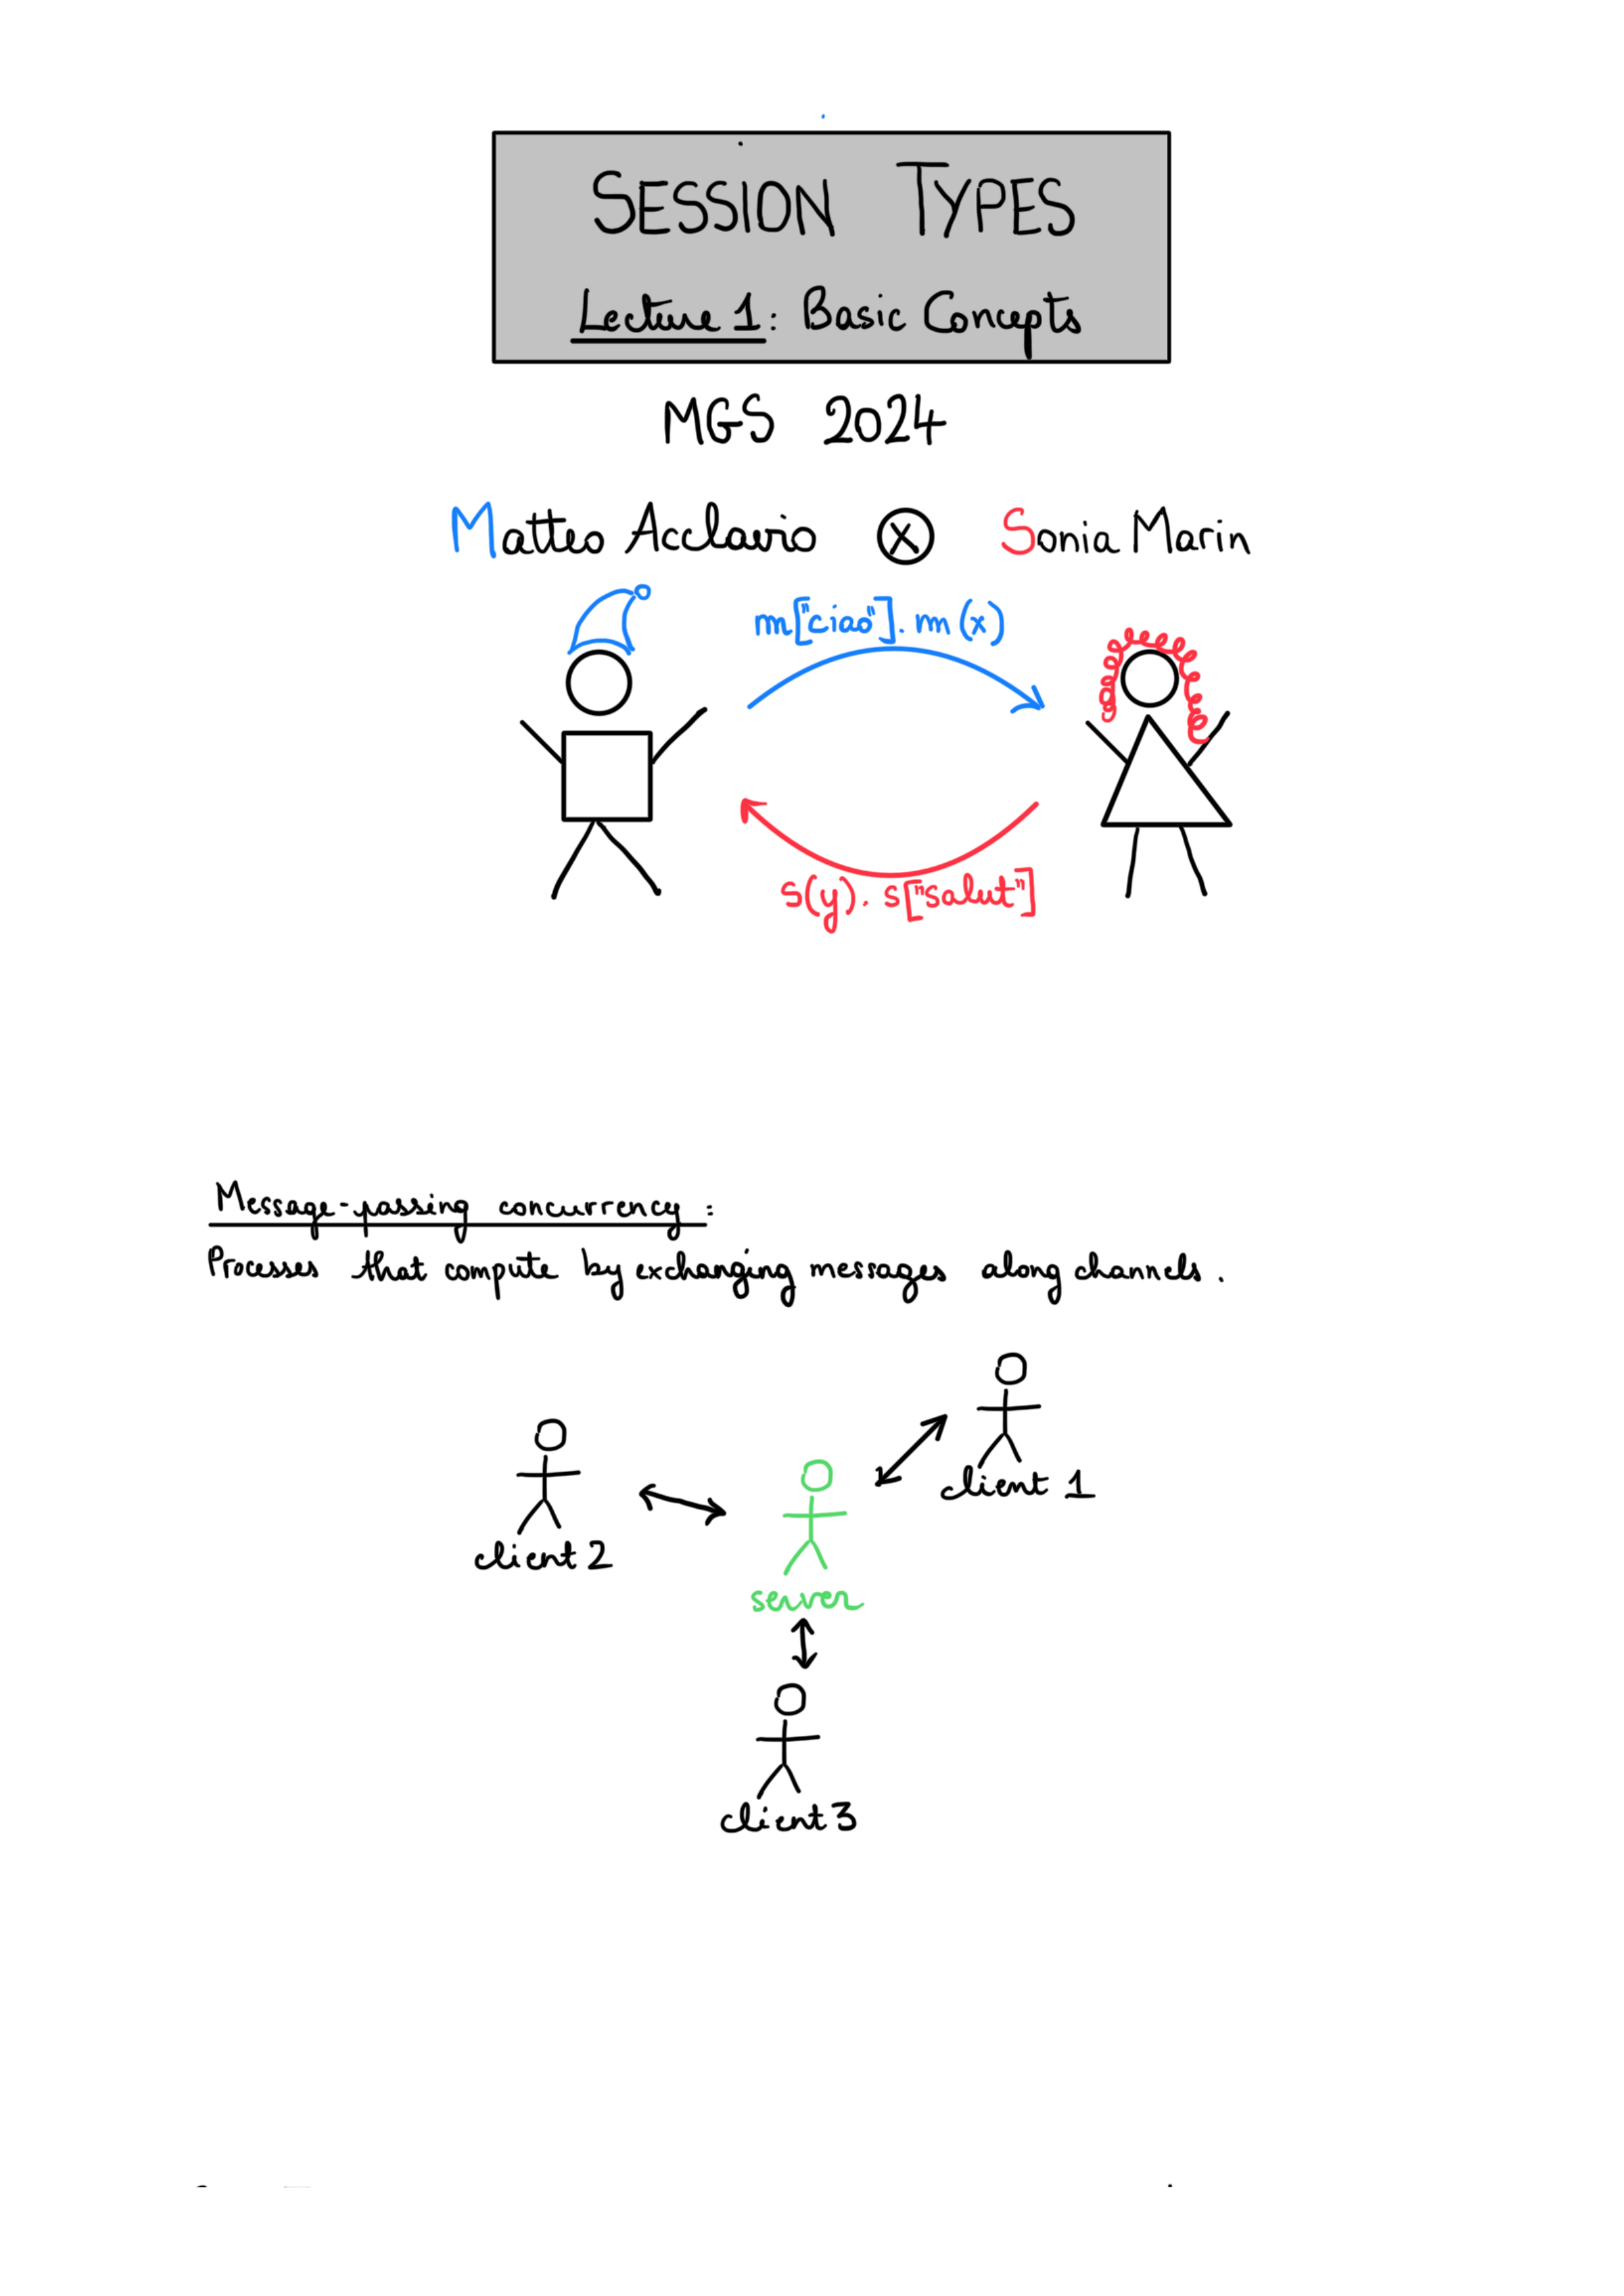 SESSION TYPES
Lecture 1: Basic Concepts
MGS 2024
Matteo Acclavio ⊗ Sonia Marin
m["ciao"]. m(x)
s(y). s["salut"]
Message-passing concurrency:
Processes that compute by exchanging messages along channels.
client 1
client 2
server
client 3